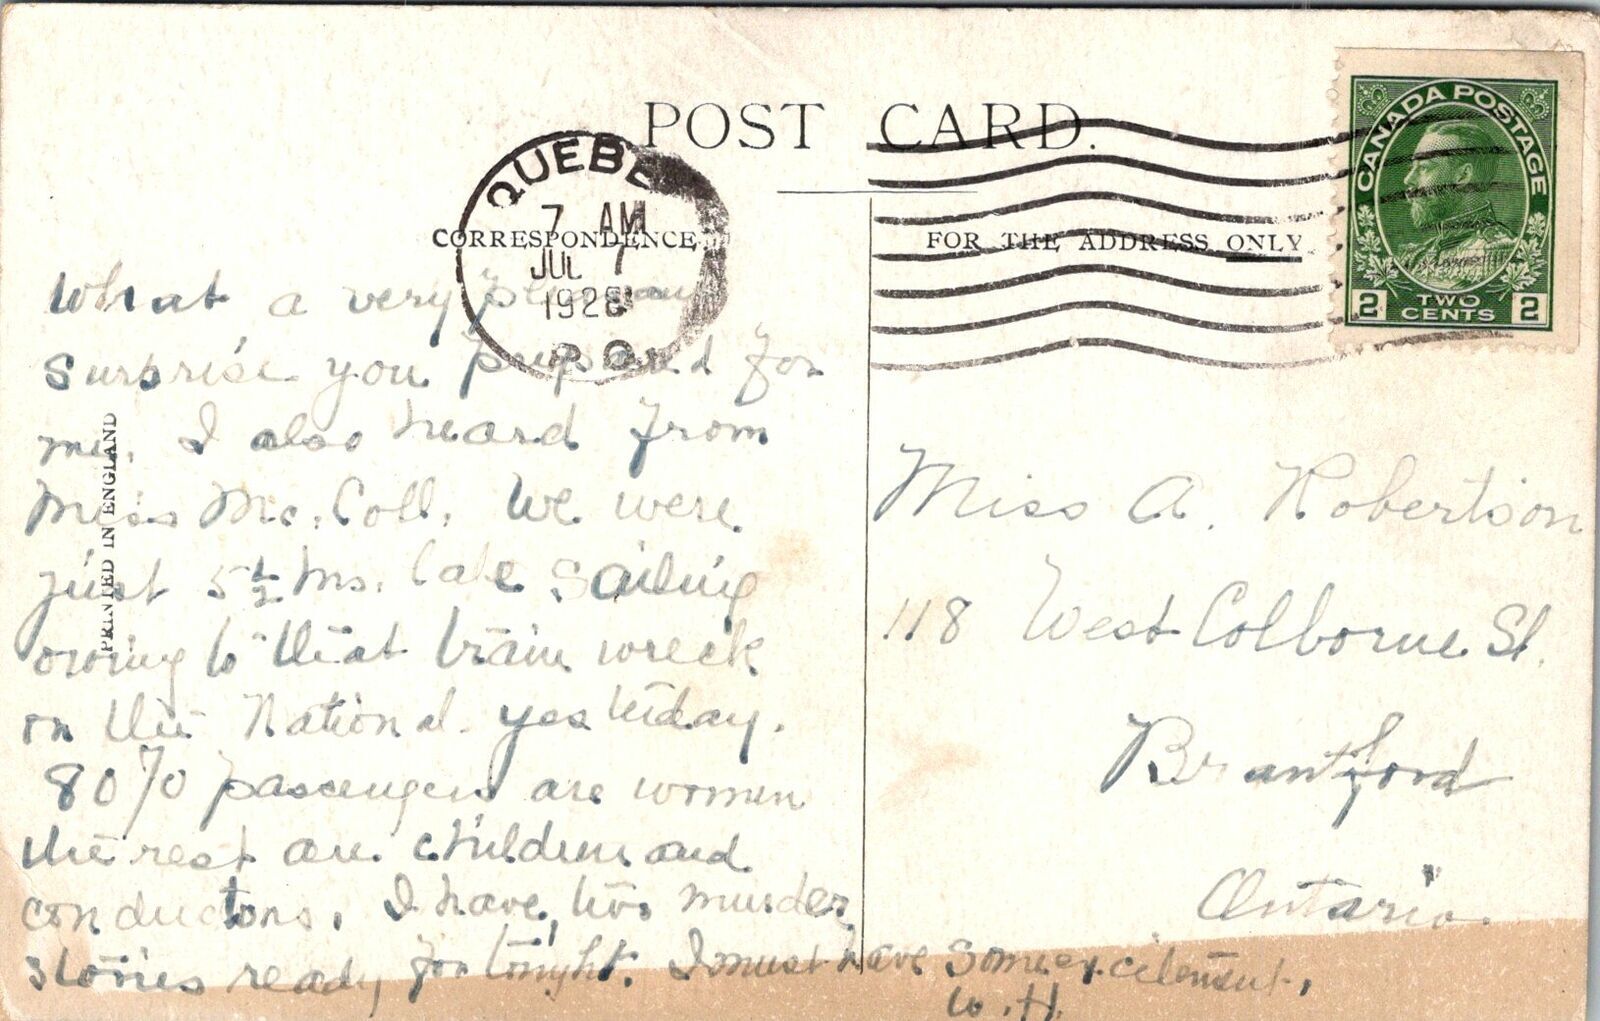 POST CARD.
CORRESPONDENCE
FOR THE ADDRESS ONLY
QUEBEC
7 AM
JUL 7
1928
P.Q.
CANADA POSTAGE
2 TWO CENTS 2
PRINTED IN ENGLAND
What a very pleasant
surprise you prepared for
me. I also heard from
Miss Mc. Coll. We were
just 5½ hrs. late sailing
owing to that train wreck
on the National yesterday.
80% passengers are women
the rest are children and
conductors. I have two murder
stories ready for tonight. I must have some excitement.
W. H.
Miss A. Robertson
118 West Colborne St.
Brantford
Ontario.